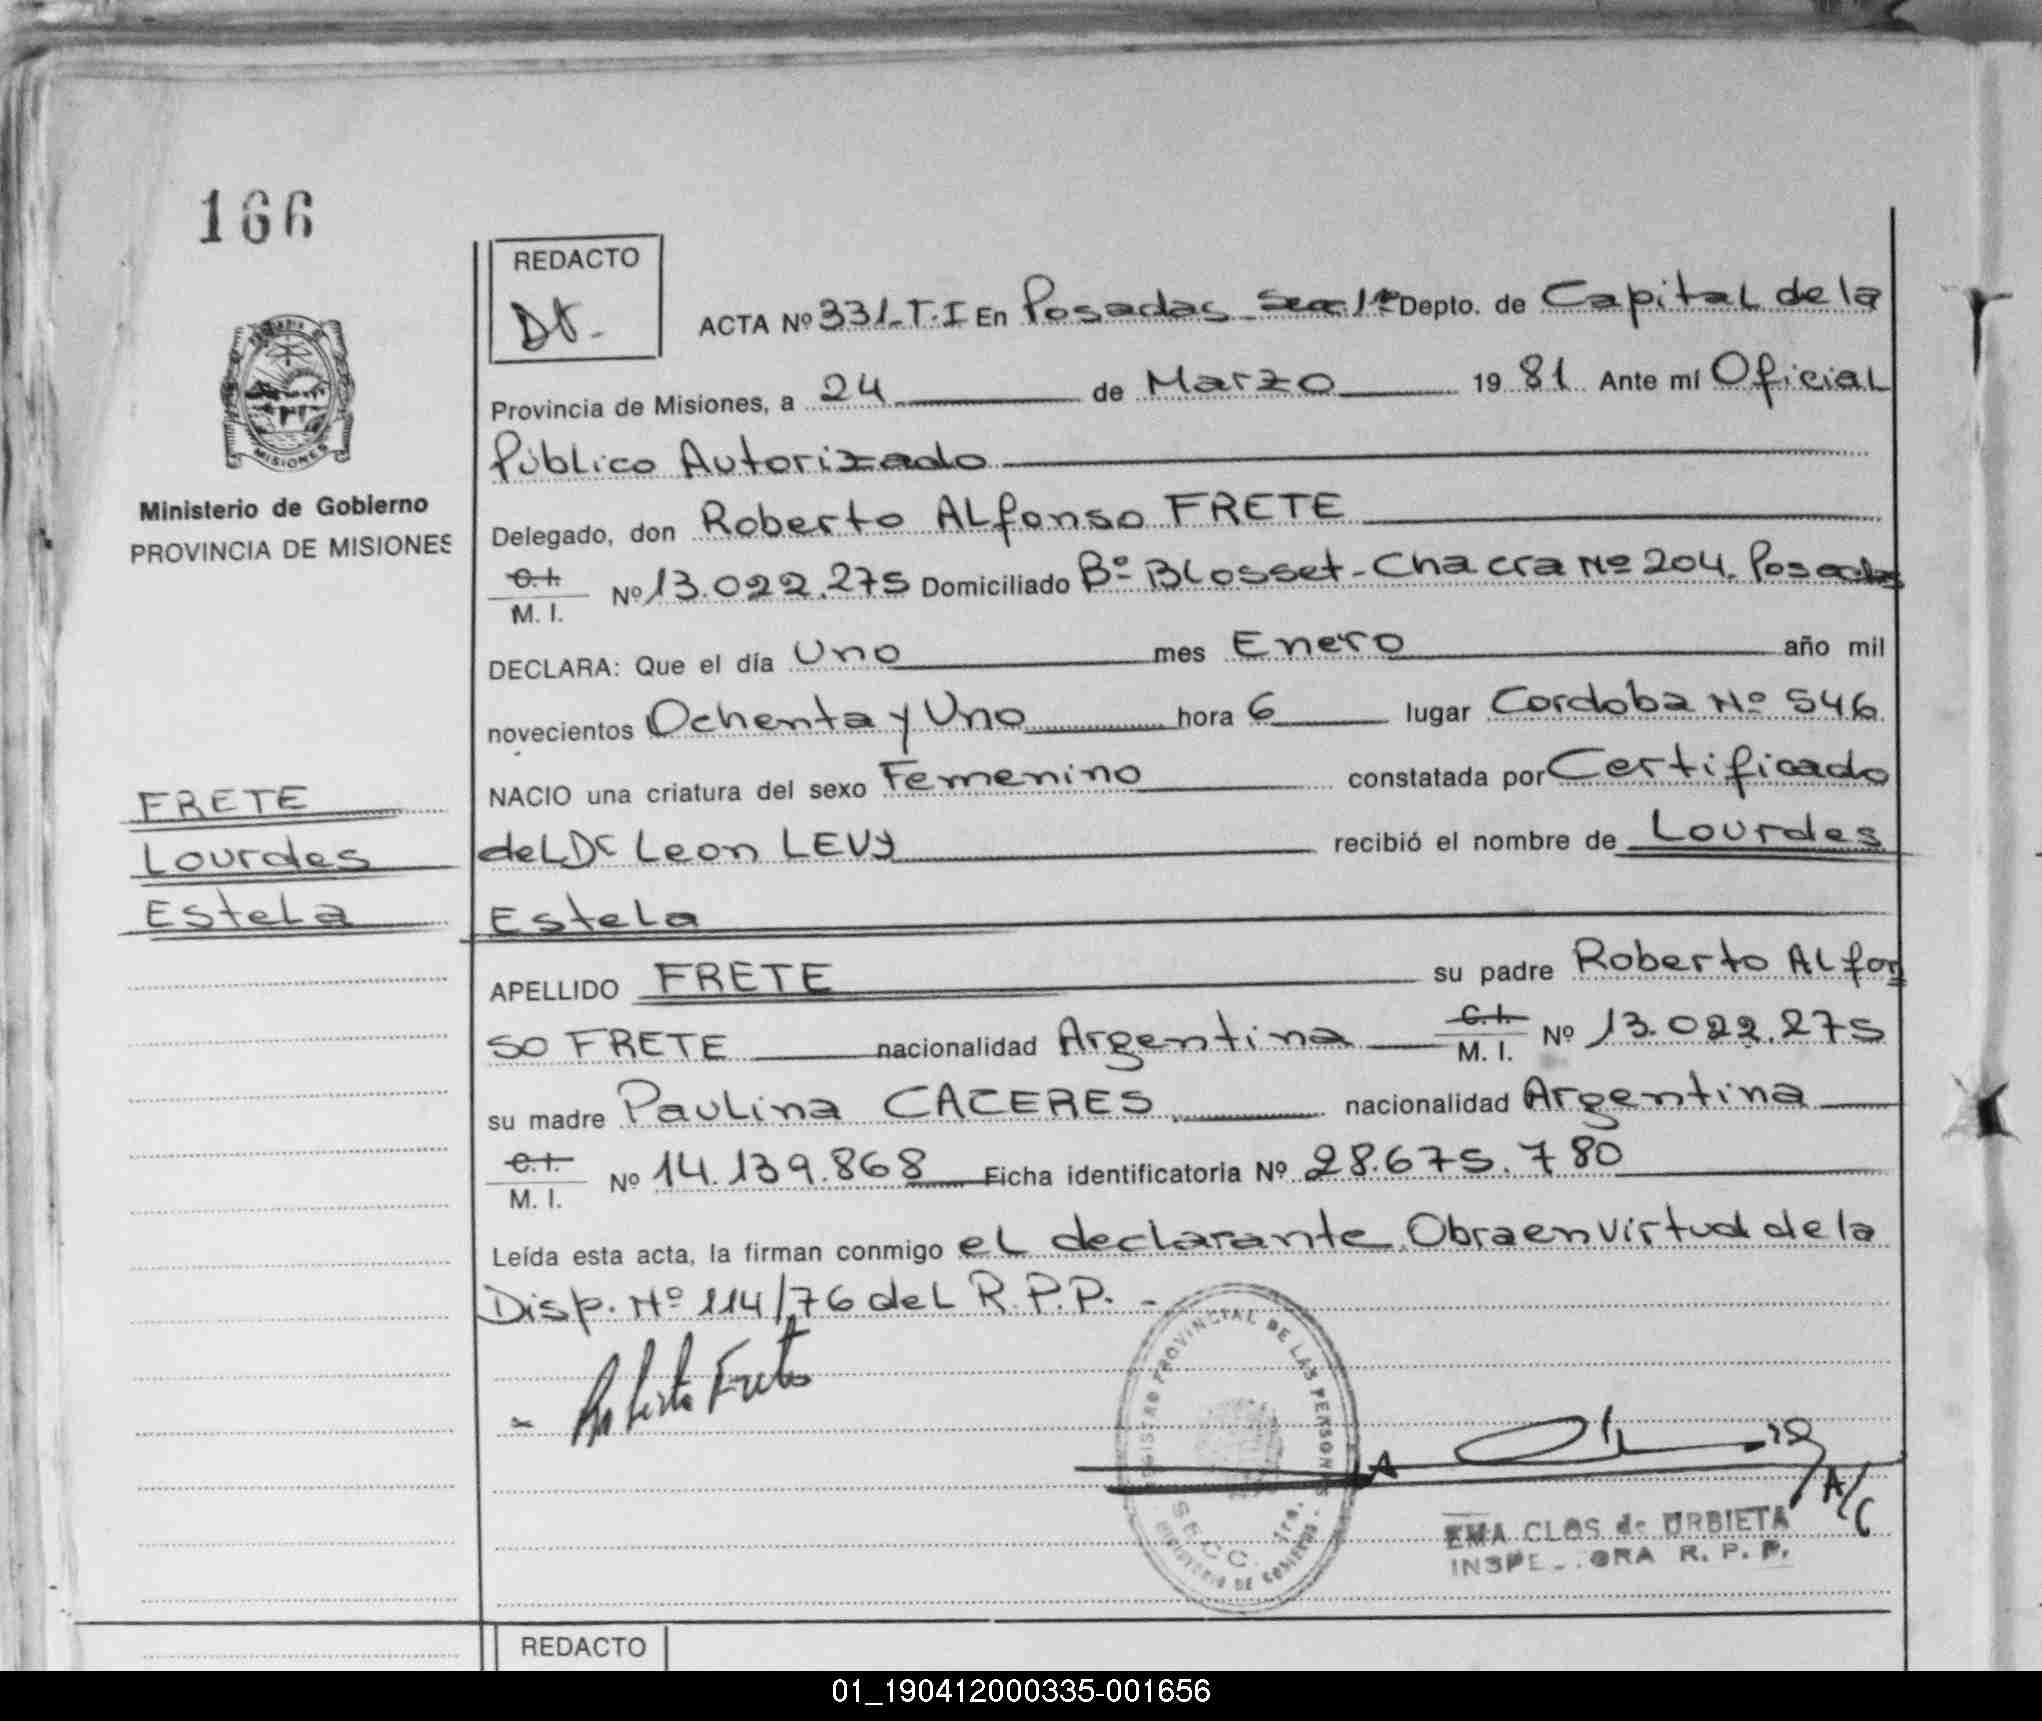 166
REDACTO
ACTA Nº 331-T.I En Posadas - Secc 1ª Depto. de Capital de la
Provincia de Misiones, a 24 de Marzo 1981 Ante mí Oficial
Público Autorizado
Ministerio de Gobierno
PROVINCIA DE MISIONES
Delegado, don Roberto ALfonso FRETE
C.I.
M. I. Nº 13.022.275 Domiciliado Bº BLosset - Chacra Nº 204. Posadas
DECLARA: Que el día Uno mes Enero año mil
novecientos Ochenta y Uno hora 6 lugar Cordoba Nº 546
NACIO una criatura del sexo Femenino constatada por Certificado
deL Dr Leon LEVY recibió el nombre de Lourdes
Estela
FRETE
Lourdes
Estela
APELLIDO FRETE su padre Roberto ALfon
so FRETE nacionalidad Argentina C.I. M. I. Nº 13.022.275
su madre Paulina CACERES nacionalidad Argentina
C.I.
M. I. Nº 14.139.868 Ficha identificatoria Nº 28.675.780
Leída esta acta, la firman conmigo eL declarante. Obra en virtud de la
Disp. Nº 114/76 deL R.P.P. -
Roberto Frete
REGISTRO PROVINCIAL DE LAS PERSONAS
SECC. 1ra.
MINISTERIO DE GOBIERNO
A/C
EMA CLOS de URBIETA
R. P. P.
REDACTO
01_190412000335-001656